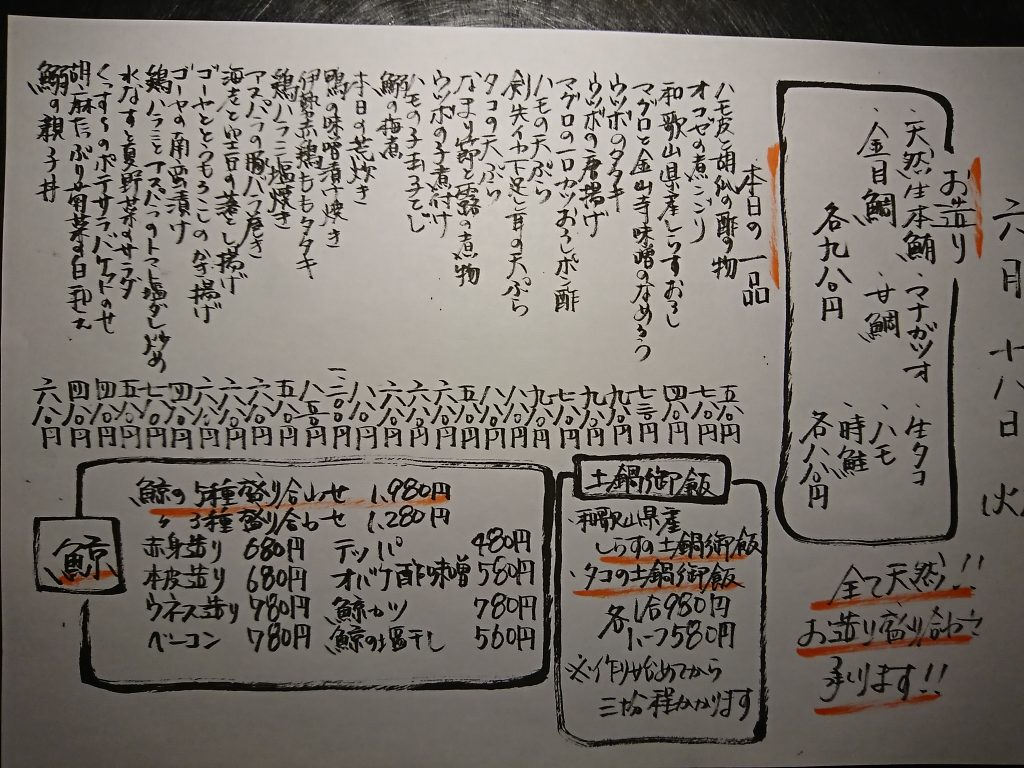 六月十八日 火
お造り
・天然生本鮪 ・マナガツオ ・生タコ
・金目鯛 ・甘鯛 ・ハモ
・時鮭
各九八〇円 各八八〇円
全て天然!!
お造り盛り合わせ
承ります!!
本日の一品
ハモ皮と胡瓜の酢の物 五八〇円
オコゼの煮こごり 七八〇円
和歌山県産しらすおろし 四八〇円
マグロと金山寺味噌のなめろう 七三〇円
ウツボのタタキ 九八〇円
ウツボの唐揚げ 九八〇円
マグロの一口カツおろしポン酢 七八〇円
ハモの天ぷら 九八〇円
剣先イカ下足と耳の天ぷら 八八〇円
タコの天ぷら 八八〇円
なまり節と蕗の煮物 五八〇円
ウツボの子煮付け 六八〇円
ハモの子玉子とじ 六八〇円
鰯の梅煮 六八〇円
本日の荒炊き 八八〇円
鴨の味噌漬け焼き 一二八〇円
伊勢赤鶏ももタタキ 八五〇円
鶏ハラミ塩焼き 五八〇円
アスパラの豚バラ巻き 六八〇円
海老と空豆の蓮し揚げ 六八〇円
ゴーヤととうもろこしのかき揚げ 六八〇円
ゴーヤの南蛮漬け 四八〇円
鶏ハラミとアスパラのトマト塩ダレ炒め 七八〇円
水なすと夏野菜のサラダ 五八〇円
くっすらのポテサラバケットのせ 四八〇円
胡麻たっぷり旬菜の白和え 四八〇円
鰯の親子丼 六八〇円
土鍋御飯
・和歌山県産
しらすの土鍋御飯
・タコの土鍋御飯
各1合980円
ハーフ580円
※作り始めてから
三拾分程かかります
鯨
鯨の5種盛り合わせ 1,980円
〃 3種盛り合わせ 1,280円
赤身造り 680円 テッパ 480円
本皮造り 680円 オバケ酢味噌 580円
ウネス造り 780円 鯨カツ 780円
ベーコン 780円 鯨の塩干し 560円